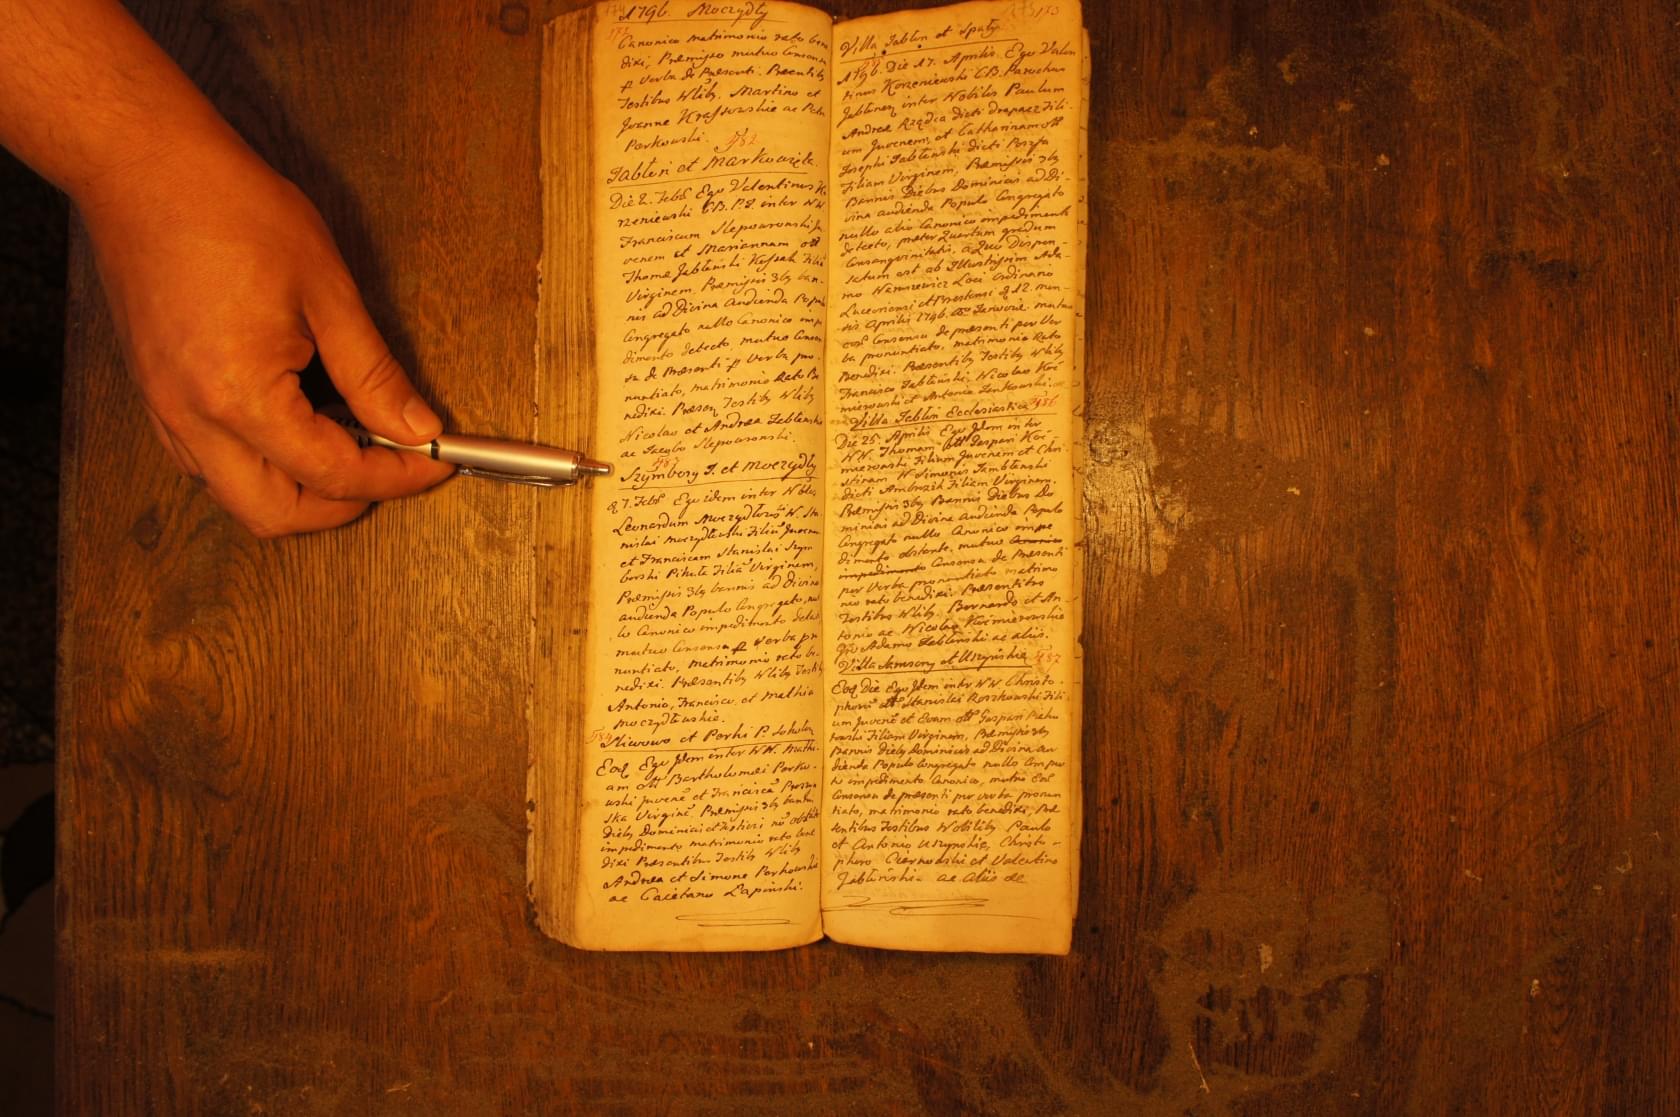 1796. Moczydły
Canonico matrimonio rato bene
dixi, Præmisso mutuo Consensu
p verba de Præsenti. Præsentibg
Testibus Nlibg. Martino et
Joanne Krassowskie ac Petro
Porkowski.
482
Jabłoń et Markowięta
Die 2. Febr Ego Valentinus Ko
rzeniewski CB. P.J. inter NN
Franciscum Slepowronski Ju
venem et Mariannam olim
Thomæ Jabłonski Kossak Filiã
Virginem, Præmissis 3bg ban-
nis ad Divina audienda Populo
Congregato nullo Canonico impe
dimento detecto, mutuo Consen
su de Præsenti p Verba pro-
nuntiato, matrimonio Rato Be
nedixi. Præsen Testibg Nlibg
Nicolao et Andrea Jabłonskie
ac Jacobo Slepowronski.
483
Szymbory J. et Moczydły
7. Febr Ego idem inter Nobles
Leonardum Moczydłowski N. Sta
nislai Moczydłowski Filiũ Juvenem
et Franciscam Stanislai Szym
borski Pikuła Filiã Virginem,
Præmissis 3bg bannis ad Divina
audienda Populo Congregato, nul
lo Canonico impedimento detecto
mutuo Consensu p Verba pro
nuntiato, Matrimonio rato be-
nedixi. Præsentibg Nlibg Testibg
Antonio, Francisco, et Mathia
Moczydłowskie.
484
Sliwowo et Porki P. Sokoły
Eoq Ego Idem inter NN. Mathi-
am olim Bartholomæi Porko-
wski juvenẽ et Franciscã
ska Virginẽ. Præmissis 3bg bannis
Diebg Dominicis et Festivis nõ obstãte
impedimento matrimonio rato bene
dixi Præsentibus Testibg Nlibg
Andrea et Simone Porkowskie
ac Caietano Łapinski.
173
Villa Jabłon et Spały
1796. Die 17. Aprilis. Ego Valen
tinus Korzeniewski CB. Parochus
Jabłonen, inter Nobiles Paulum
Andreæ Rządca dicti Drapacz Fili-
um Juvenem, et Catharinam olim
Josephi Jabłonski dicti
Filiam Virginem, Præmissis 3bg
Bannis Diebus Dominicis ad Di-
vina audienda Populo Congregato
nullo alio Canonico impedimento
detecto, præter Quartum gradum
Consangvinitatis, a Quo Dispen-
satum est ab Illustrissim Ada-
mo Naruszewicz Loci Ordinario
Luceoriensi et Brestensi 12. men-
sis Aprilis 1796. Ao Janoviæ. mutuo
Consensu de præsenti per Ver
ba pronuntiato, matrimonio Rato
Benedixi. Præsentibg Testibg Nlibg
Francisco Jabłonski, Nicolao Koś-
mierowski et Antonio Jenkowski.
Villa Jabłon Ecclesiastica 486
Die 25. Aprilis Ego Idem inter
NN. Thomam olim Gaspari Koś-
mierowski Filium Juvenem et Chri-
stinam N. Simonis Jambłonski
dicti Ambrozik Filiam Virginem,
Præmissis 3bg Bannis Diebus Do
minicis ad Divina Audienda Populo
Congregato nullo Canonico impe
dimento obstante mutuo Canonico
impedimento Consensu de Præsenti
per Verba pronuntiato matrimo
nio rato benedixi. Præsentibg
Testibus Nlibg. Bernardo et An-
tonio ac Nicolao Kosmierowskie
Adamo Jabłonski ac aliis.
Villa Samsony et Uszyńskie 487
Eoq Die Ego Idem inter NN. Christo-
phorũ olim Stanislai Roszkowski Fili-
um Juvenẽ et Evam olim Gaspari
Filiam Virginem, Præmissis 3bg
Bannis Diebg Dominicus ad Divina au
dienda Populo Congregato nullo Comper
to impedimento Canonico, mutuo Eor
Consensu de præsenti per verba pronun
tiato, matrimonio rato benedixi, Præ
sentibus Testibus Nobilibg Paulo
et Antonio Uszynskie, Christo-
phoro Czarnowski et Valentino
Jabłonskie ac aliis de